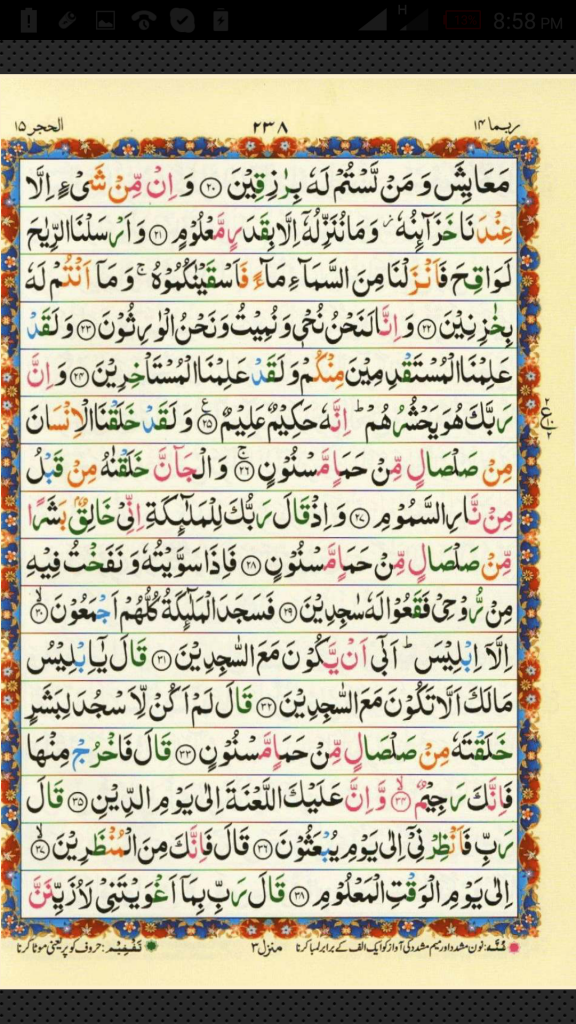 H 13% 8:58 PM
ربما ١٤ ٢٣٨ الحجر ١٥
مَعَايِشَ وَ مَنْ لَّسْتُمْ لَهٗ بِرٰزِقِيْنَ ﴿۲۰﴾ وَ اِنْ مِّنْ شَيْءٍ اِلَّا
عِنْدَنَا خَزَآئِنُهٗ ۫ وَ مَا نُنَزِّلُهٗۤ اِلَّا بِقَدَرٍ مَّعْلُوْمٍ ﴿۲۱﴾ وَ اَرْسَلْنَا الرِّيٰحَ
لَوَاقِحَ فَاَنْزَلْنَا مِنَ السَّمَآءِ مَآءً فَاَسْقَيْنٰكُمُوْهُ ۚ وَ مَاۤ اَنْتُمْ لَهٗ
بِخٰزِنِيْنَ ﴿۲۲﴾ وَ اِنَّا لَنَحْنُ نُحْيٖ وَ نُمِيْتُ وَ نَحْنُ الْوٰرِثُوْنَ ﴿۲۳﴾ وَ لَقَدْ
عَلِمْنَا الْمُسْتَقْدِمِيْنَ مِنْكُمْ وَ لَقَدْ عَلِمْنَا الْمُسْتَاْخِرِيْنَ ﴿۲۴﴾ وَ اِنَّ
رَبَّكَ هُوَ يَحْشُرُهُمْ ؕ اِنَّهٗ حَكِيْمٌ عَلِيْمٌ ﴿۲۵﴾ وَ لَقَدْ خَلَقْنَا الْاِنْسَانَ
مِنْ صَلْصَالٍ مِّنْ حَمَاٍ مَّسْنُوْنٍ ﴿۲۶﴾ وَ الْجَآنَّ خَلَقْنٰهُ مِنْ قَبْلُ
مِنْ نَّارِ السَّمُوْمِ ﴿۲۷﴾ وَ اِذْ قَالَ رَبُّكَ لِلْمَلٰٓئِكَةِ اِنِّيْ خَالِقٌۢ بَشَرًا
مِّنْ صَلْصَالٍ مِّنْ حَمَاٍ مَّسْنُوْنٍ ﴿۲۸﴾ فَاِذَا سَوَّيْتُهٗ وَ نَفَخْتُ فِيْهِ
مِنْ رُّوْحِيْ فَقَعُوْا لَهٗ سٰجِدِيْنَ ﴿۲۹﴾ فَسَجَدَ الْمَلٰٓئِكَةُ كُلُّهُمْ اَجْمَعُوْنَ ﴿۳۰﴾
اِلَّاۤ اِبْلِيْسَ ؕ اَبٰۤى اَنْ يَّكُوْنَ مَعَ السّٰجِدِيْنَ ﴿۳۱﴾ قَالَ يٰۤاِبْلِيْسُ
مَا لَكَ اَلَّا تَكُوْنَ مَعَ السّٰجِدِيْنَ ﴿۳۲﴾ قَالَ لَمْ اَكُنْ لِّاَسْجُدَ لِبَشَرٍ
خَلَقْتَهٗ مِنْ صَلْصَالٍ مِّنْ حَمَاٍ مَّسْنُوْنٍ ﴿۳۳﴾ قَالَ فَاخْرُجْ مِنْهَا
فَاِنَّكَ رَجِيْمٌ ﴿۳۴﴾ وَّ اِنَّ عَلَيْكَ اللَّعْنَةَ اِلٰى يَوْمِ الدِّيْنِ ﴿۳۵﴾ قَالَ
رَبِّ فَاَنْظِرْنِيْۤ اِلٰى يَوْمِ يُبْعَثُوْنَ ﴿۳۶﴾ قَالَ فَاِنَّكَ مِنَ الْمُنْظَرِيْنَ ﴿۳۷﴾
اِلٰى يَوْمِ الْوَقْتِ الْمَعْلُوْمِ ﴿۳۸﴾ قَالَ رَبِّ بِمَاۤ اَغْوَيْتَنِيْ لَاُزَيِّنَنَّ
غُنّہ: نون مشدد اور میم مشدد کی آواز کو ایک الف کے برابر لمبا کرنا منزل ٣ تَفْخِیْم: حروف کو پُر یعنی موٹا کرنا